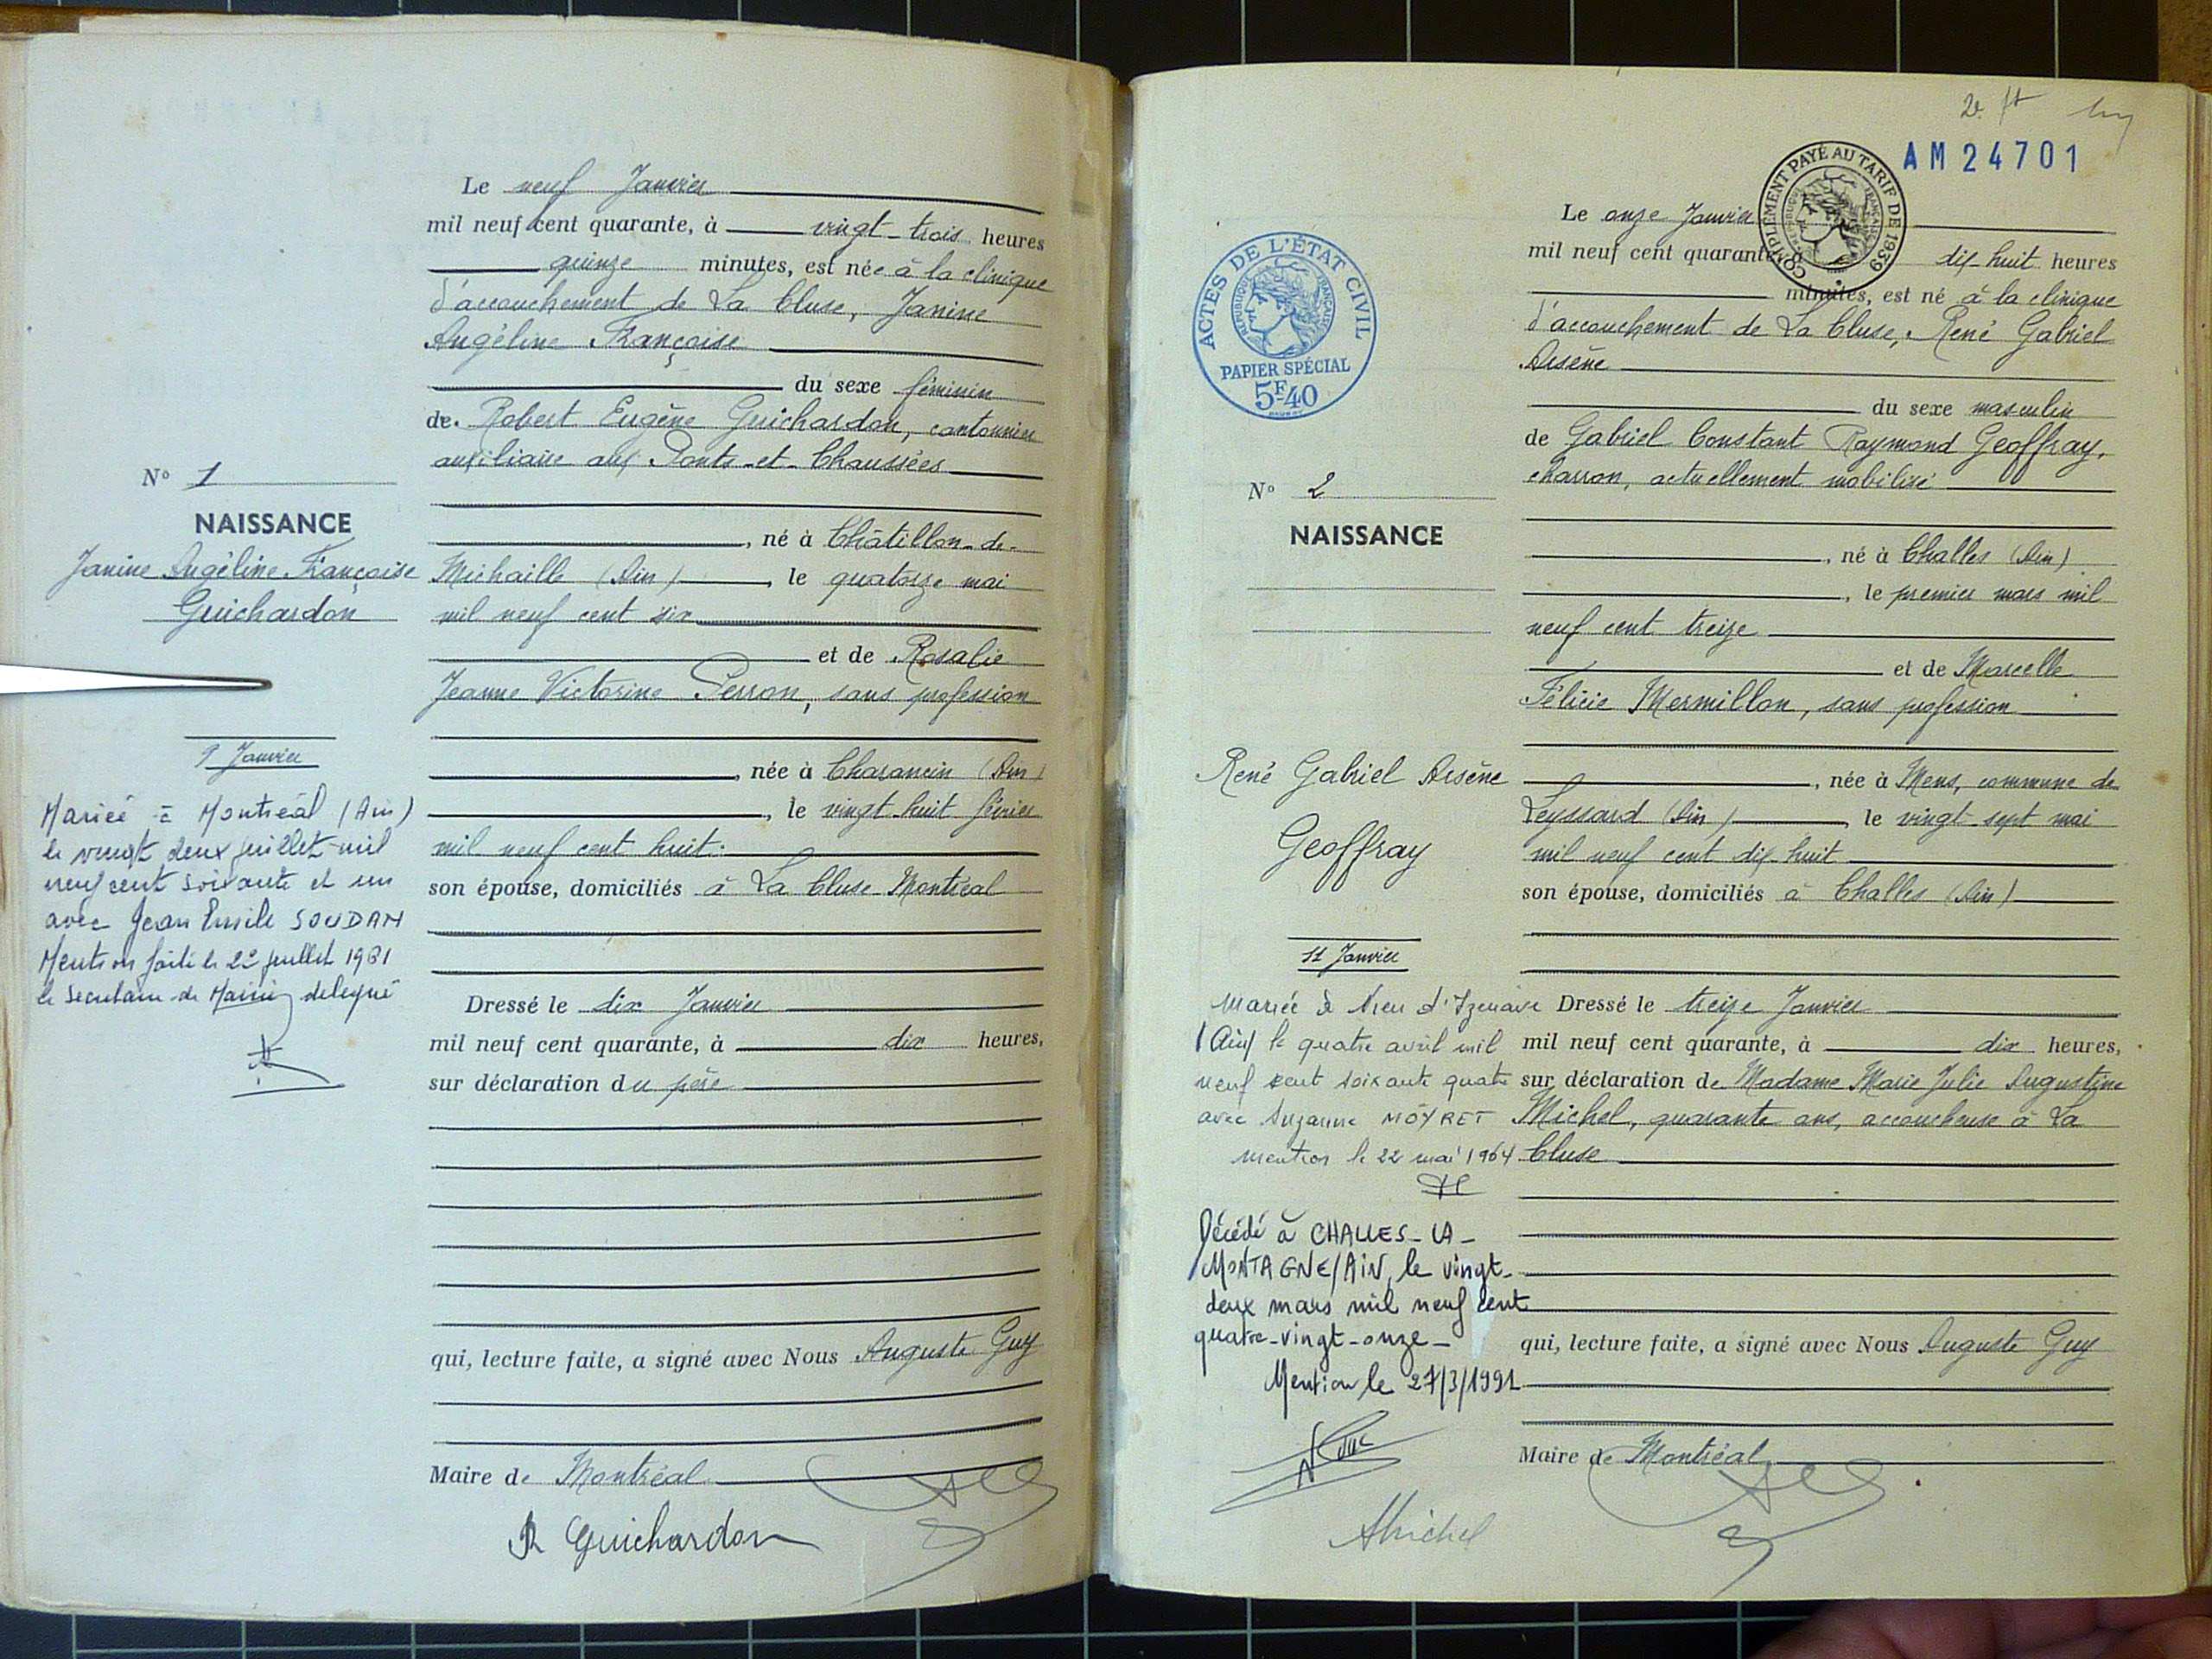 Le neuf Janvier
mil neuf cent quarante, à vingt-trois heures
quinze minutes, est née à la clinique
d'accouchement de La Cluse, Janine
Angéline Françoise
du sexe féminin
de Robert Eugène Guichardon, cantonnier
auxiliaire aux Ponts-et-Chaussées
, né à Châtillon-de-
Michaille (Ain), le quatorze mai
mil neuf cent six
et de Rosalie
Jeanne Victorine Perron, sans profession
, née à Charancin (Ain)
, le vingt-huit février
mil neuf cent huit.
son épouse, domiciliés à La Cluse-Montréal
Dressé le dix Janvier
mil neuf cent quarante, à dix heures,
sur déclaration du père
qui, lecture faite, a signé avec Nous Auguste Guy
Maire de Montréal
R Guichardon
N° 1
NAISSANCE
Janine Angéline Françoise
Guichardon
9 Janvier
Mariée à Montréal (Ain)
le vingt deux juillet mil
neuf cent soixante et un
avec Jean Emile SOUDAN
Mention faite le juillet 1961
le Secrétaire de Mairie délégué
AM24701
COMPLÉMENT PAYÉ AU TARIF DE 1939
RÉPUBLIQUE FRANÇAISE
ACTES DE L'ÉTAT CIVIL
RÉPUBLIQUE FRANÇAISE
PAPIER SPÉCIAL
5F40
Le onze Janvier
mil neuf cent quarante, à dix-huit heures
minutes, est né à la clinique
d'accouchement de La Cluse, René Gabriel
Arsène
du sexe masculin
de Gabriel Constant Raymond Geoffray,
charron, actuellement mobilisé
, né à Challes (Ain)
, le premier mars mil
neuf cent treize
et de Marcelle
Félicie Mermillon, sans profession
, née à Mens, commune de
Leyssard (Ain), le vingt-sept mai
mil neuf cent dix-huit
son épouse, domiciliés à Challes (Ain)
Dressé le treize Janvier
mil neuf cent quarante, à dix heures,
sur déclaration de Madame Marie Julie Augustine
Michel, quarante ans, accoucheuse à La
Cluse
qui, lecture faite, a signé avec Nous Auguste Guy
Maire de Montréal
N° 2
NAISSANCE
René Gabriel Arsène
Geoffray
11 Janvier
Mariée à Vieu d'Izenave
(Ain) le quatre avril mil
neuf cent soixante quatre
avec Suzanne MOYRET
mention le 22 mai 1964
Décédé à CHALLES-LA-
MONTAGNE/AIN, le vingt-
deux mars mil neuf cent
quatre-vingt-onze-
Mention le 27/3/1991
AMichel